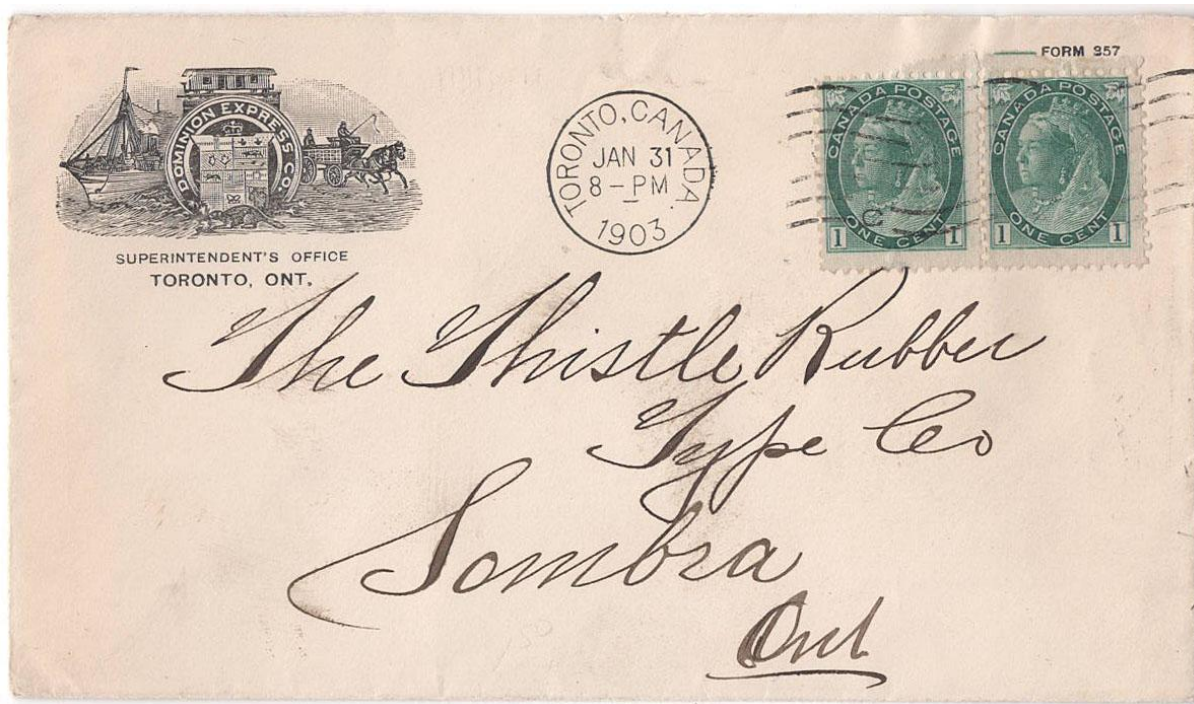 FORM 357
DOMINION EXPRESS CO.
SUPERINTENDENT'S OFFICE
TORONTO, ONT.
TORONTO, CANADA.
JAN 31
8 - PM
1903
CANADA POSTAGE
ONE CENT
1 1
C
CANADA POSTAGE
ONE CENT
1 1
The Thistle Rubber
Type Co
Sombra
Ont